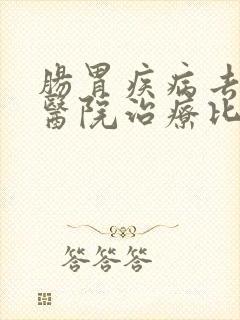 腸胃疾病去
醫院治療比
答答答